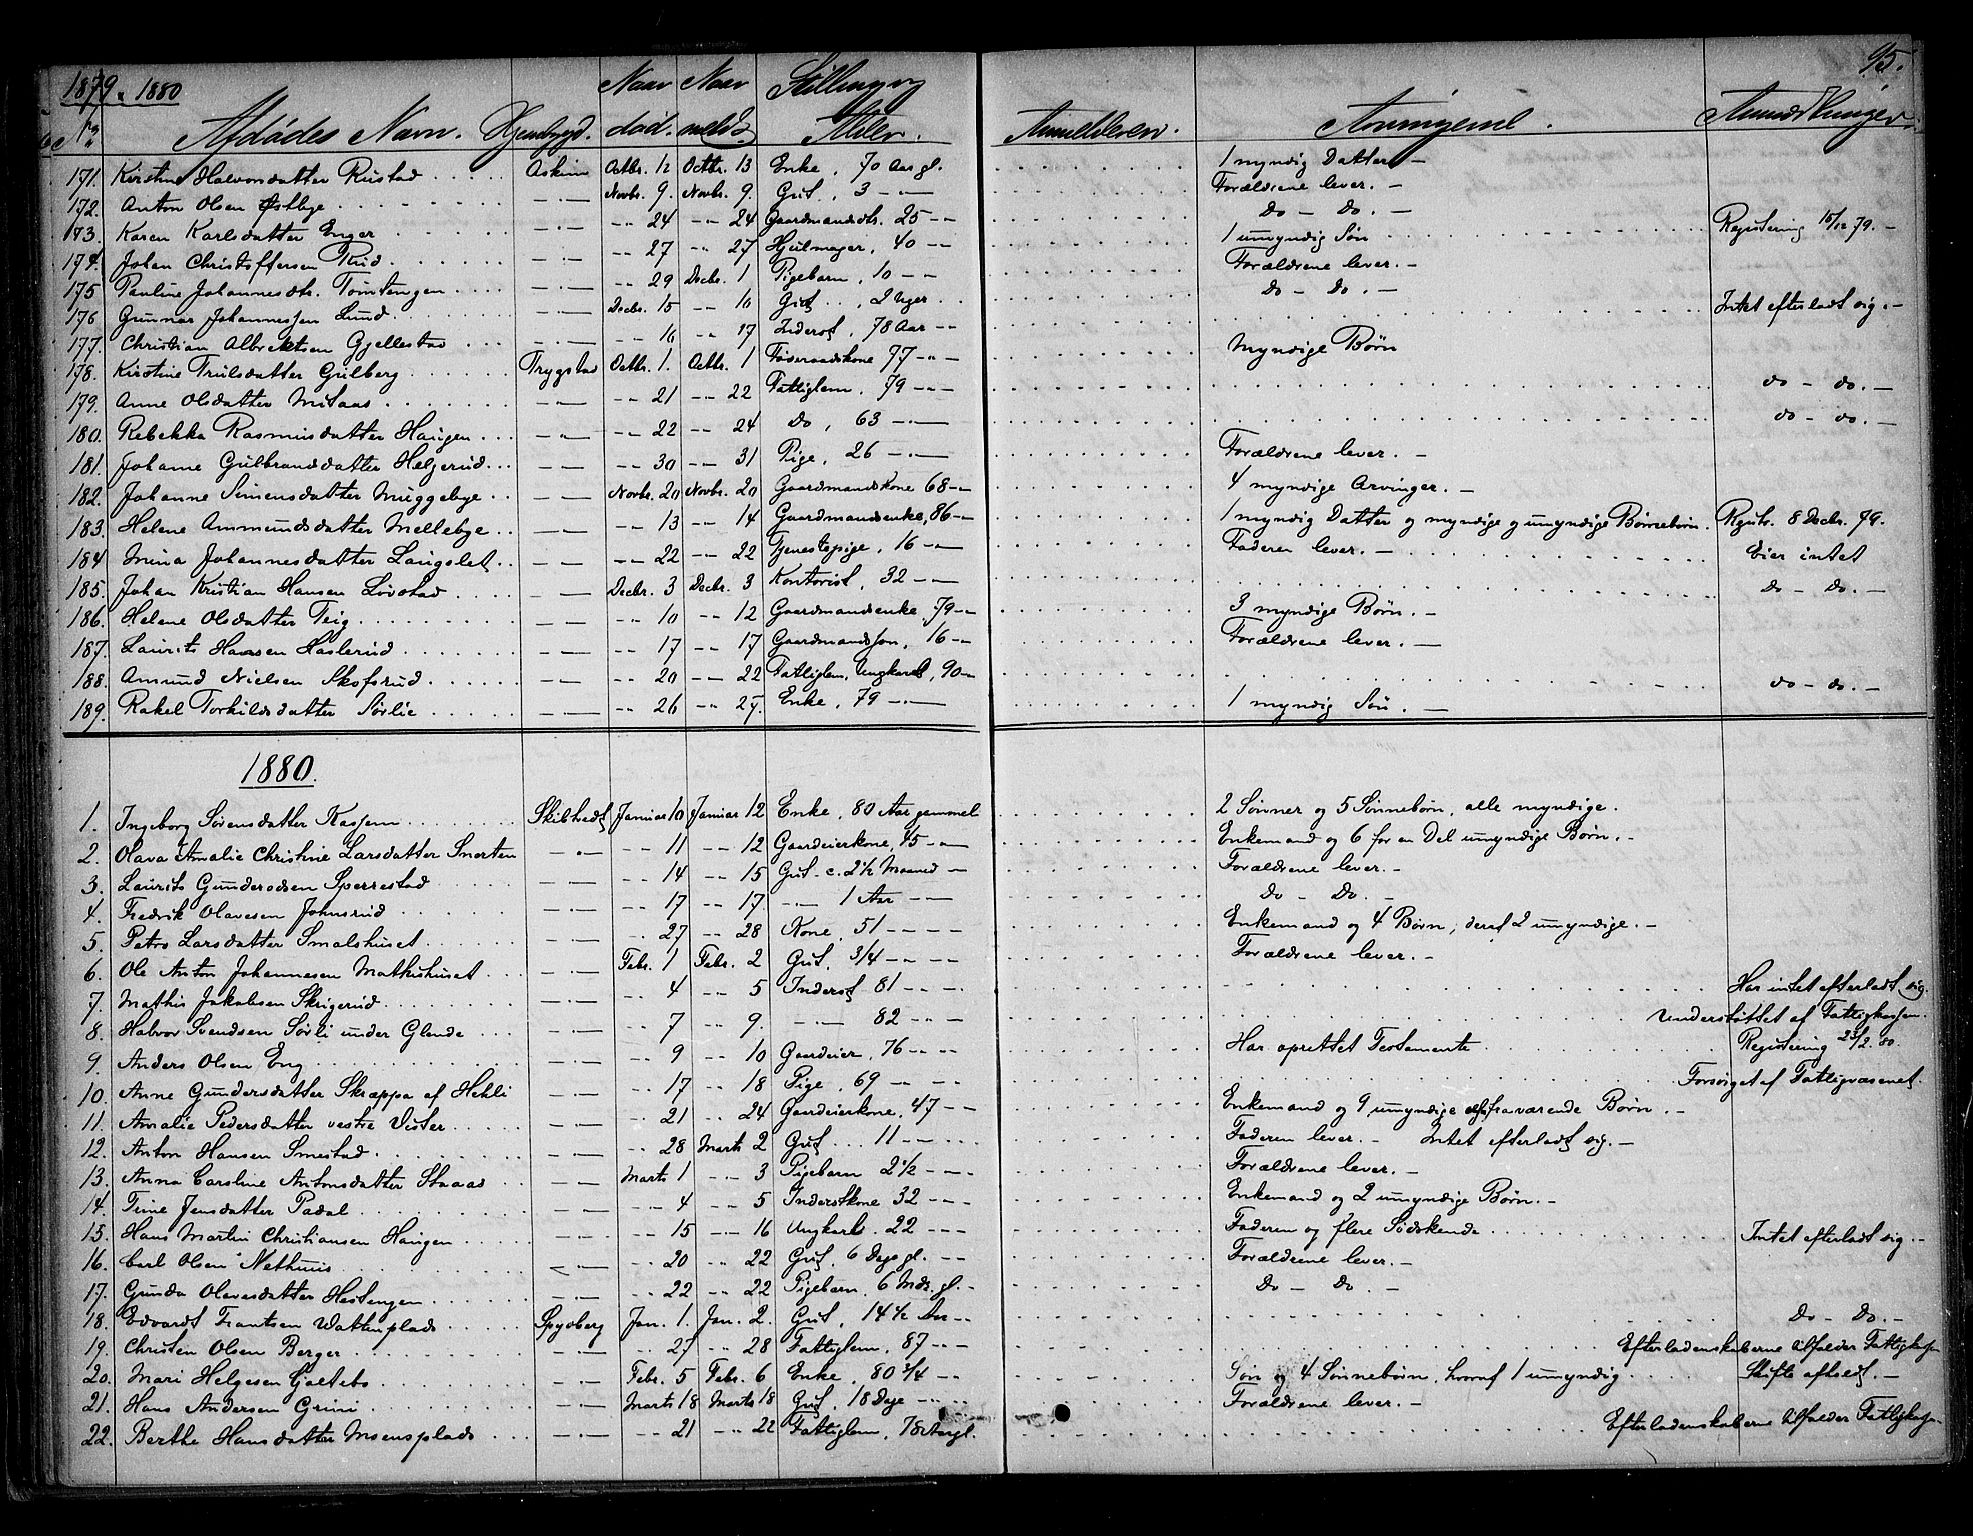 1879-1880 95.
No Afdødes Navn. Hjembygd. Naar død. Naar meldt. Stilling og Alder. Anmelderen. Arvingerne. Anmærkninger.
171. Kirstine Halvorsdatter Rustad Askim Octbr. 12 Octbr. 13 Enke, 70 Aar gl. 1 myndig Datter.-
172. Anton Olsen Østbye -"- Novbr. 9. Novbr. 9. Gut, 3 -"- Forældrene lever.-
173. Karen Karlsdatter Enger -"- -"- 24 -"- 24 Gaardmandsdtr. 25 -"- Do - Do.-
174. Johan Christoffersen Rud -"- -"- 27 -"- 27 Hjulmager, 40 -"- 1 umyndig Søn Registering 15/12 79.-
175 Pauline Johannesdtr. Tømtengen -"- -"- 29 Decbr. 1 Pigebarn, 10 -"- Forældrene lever.-
176 Gunnar Johannessen Lund -"- Decbr. 15 -"- 16 Gut, 2 Uger Do - Do.-
177. Christian Albrektsen Gjellestad -"- -"- 16 -"- 17 Inderst, 78 Aar -"- Intet efterladt sig.-
178. Kirstine Trulsdatter Gulberg Trygstad Octbr. 1. Octbr. 1 Føderaadskone 77 -"- Myndige Børn
179. Anne Olsdatter Mitaas -"- -"- 21 -"- 22 Fattiglem, 79 -"- do - do.-
180. Rebekka Rasmusdatter Haugen -"- -"- 22 -"- 24 Do, 63 -"- do - do.-
181. Johanne Gulbrandsdatter Helgerud -"- -"- 30 -"- 31 Pige, 26 -"- Forældrene lever.-
182. Johanne Simensdatter Muggebye -"- Novbr. 20 Novbr. 20 Gaardmandskone 68 -"- 4 myndige Arvinger.-
183. Helene Ammundsdatter Mellebye -"- -"- 13 -"- 14 Gaardmandsenke, 86 -"- 1 myndig Datter og myndige og umyndige Børnebørn. Regstr. 8 Decbr. 79.
184 Mina Johannesdatter Langslet -"- -"- 22 -"- 22 Tjenestepige, 16 -"- Faderen lever.- Eier intet
185. Johan Kristian Hansen Løvstad -"- Decbr. 3 Decbr. 3 Kontorist, 32 -"- Do - Do.-
186. Helene Olsdatter Teig -"- -"- 10 -"- 12 Gaardmandsenke, 79 -"- 3 myndige Børn.-
187. Laurits Hansen Haslerud -"- -"- 17 -"- 17 Gaardmandssøn, 16 -"- Forældrene lever.-
188. Amund Nielsen Skofsrud -"- -"- 20 -"- 22 Fattiglem, Ungkarl, 90 -"- do - do.-
189. Rakel Torkildsdatter Sørlie -"- -"- 26 -"- 27. Enke, 79 -"- 1 myndig Søn.-
1880.
1. Ingeborg Sørensdatter Kassem Skibtvedt Januar 10 Januar 12 Enke, 80 Aar gammel 2 Sønner og 5 Sønnebørn, alle myndige.
2. Olava Amalie Christine Larsdatter Smerten -"- -"- 11 -"- 12 Gaardeierkone, 45 -"- Enkemand og 6 for en Del umyndige Børn.-
3. Laurits Gunderodsen Sperrestad -"- -"- 14 -"- 15 Gut - c. 2½ Maaned - Forældrene lever.-
4. Fredrik Olavesen Johnsrud -"- -"- 17 -"- 17 -"- 1 Aar -"- Do - Do.-
5. Petro Larsdatter Smalshuset -"- -"- 27 -"- 28 Kone, 51 -"- Enkemand og 4 Børn, deraf 2 umyndige.-
6. Ole Anton Johannesen Mathishuset -"- Febr. 1 Febr. 2 Gut, 3/4 -"- Forældrene lever.-
7. Mathis Jakobsen Skrigerud -"- -"- 4 -"- 5 Inderst 81 -"- Har intet efterladt sig.
8. Halvor Svendsen Sørli under Glende -"- -"- 7 -"- 9. -"- 82 -"- Understøttet af Fattigkassen.
9. Anders Olsen Eng -"- -"- 9 -"- 10 Gaardeier, 76 -"- Har oprettet Testamente Registering 23/2 80.
10. Anne Gundersdatter Skræppa af Hehli -"- -"- 17 -"- 18 Pige, 69 -"- Forsørget af Fattigvæsenet.
11. Amalie Pedersdatter vestre Vister -"- -"- 21 -"- 24 Gaardeierkone, 47 -"- Enkemand og 9 umyndige fraværende Børn.-
12. Anton Hansen Smestad -"- -"- 28 Marts 2 Gut 11 -"- Faderen lever.- Intet efterladt sig.-
13. Anna Caroline Antonsdatter Staaad -"- Marts 1 -"- 3 Pigebarn 2½ -"- Forældrene lever.-
14. Trine Jensdatter Padal -"- -"- 4 -"- 5 Inderstkone 32 -"- Enkemand og 2 umyndige Børn.-
15. Hans Martin Christiansen Haugen -"- -"- 15 -"- 16 Ungkarl. 22 -"- Faderen og flere Sødskende Intet efterladt sig.-
16. Carl Olsen Nethuus -"- -"- 20 -"- 22 Gut, 6 Dage gl. -"- Forældrene lever.-
17. Gunda Olavesdatter Hestengen -"- -"- 22 -"- 22 Pigebarn, 6 Mdr. gl. - Do - Do.-
18. Edvardt Frantsen Vattenplads Spydberg Jan. 1. Jan. 2. Gut, 14½ Aar -"- Do - Do.-
19. Christen Olsen Berger -"- -"- 27 -"- 28 Fattiglem, 87 -"- Efterladenskaberne tilfalder Fattigkassen
20. Mari Helgesen Gjaltebo -"- Febr. 5 Febr. 6 Enke, 80 3/4 -"- Søn og 4 Sønnebørn, hvoraf 1 umyndig Skifte afholdt.-
21. Hans Andersen Grini -"- Marts 18 Marts 18 Gut, 18 Dage -"- Forældrene lever.-
22. Berthe Hansdatter Moensplads -"- -"- 21 -"- 22 Fattiglem, 78 Aar gl. Efterladenskaberne tilfalder Fattigkassen